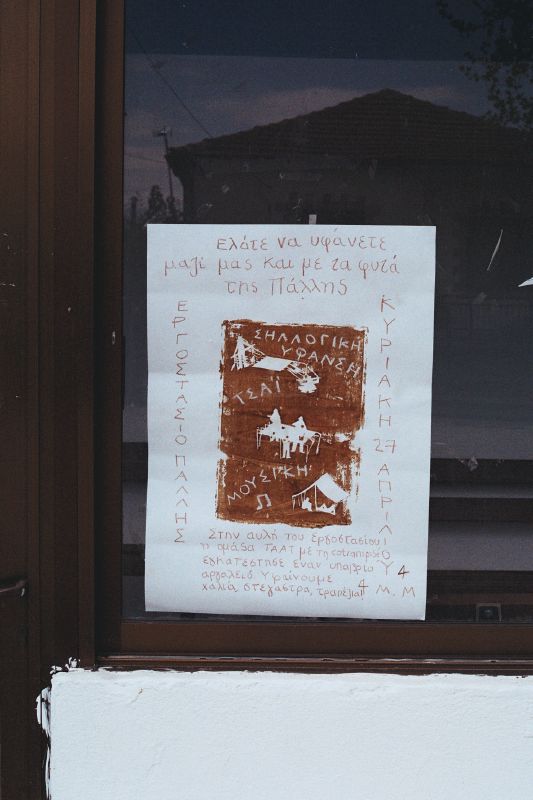 Ελάτε να υφάνετε
μαζί μας και με τα φυτά
της Πάλλης
ΕΡΓΟΣΤΑΣΙΟ ΠΑΛΛΗΣ
ΣΗΛΛΟΓΙΚΗ
ΥΦΑΝΣΗ
ΤΣΑΪ
ΜΟΥΣΙΚΗ
ΚΥΡΙΑΚΗ 27 ΑΠΡΙΛΙΟΥ
4 Μ.Μ
Στην αυλή του εργοστασίου
η ομάδα ΤΑΑΤ με τη
εγκατέστησε έναν υπαίθριο
αργαλειό. Υφαίνουμε
χαλιά, στέγαστρα, τραπέζια!